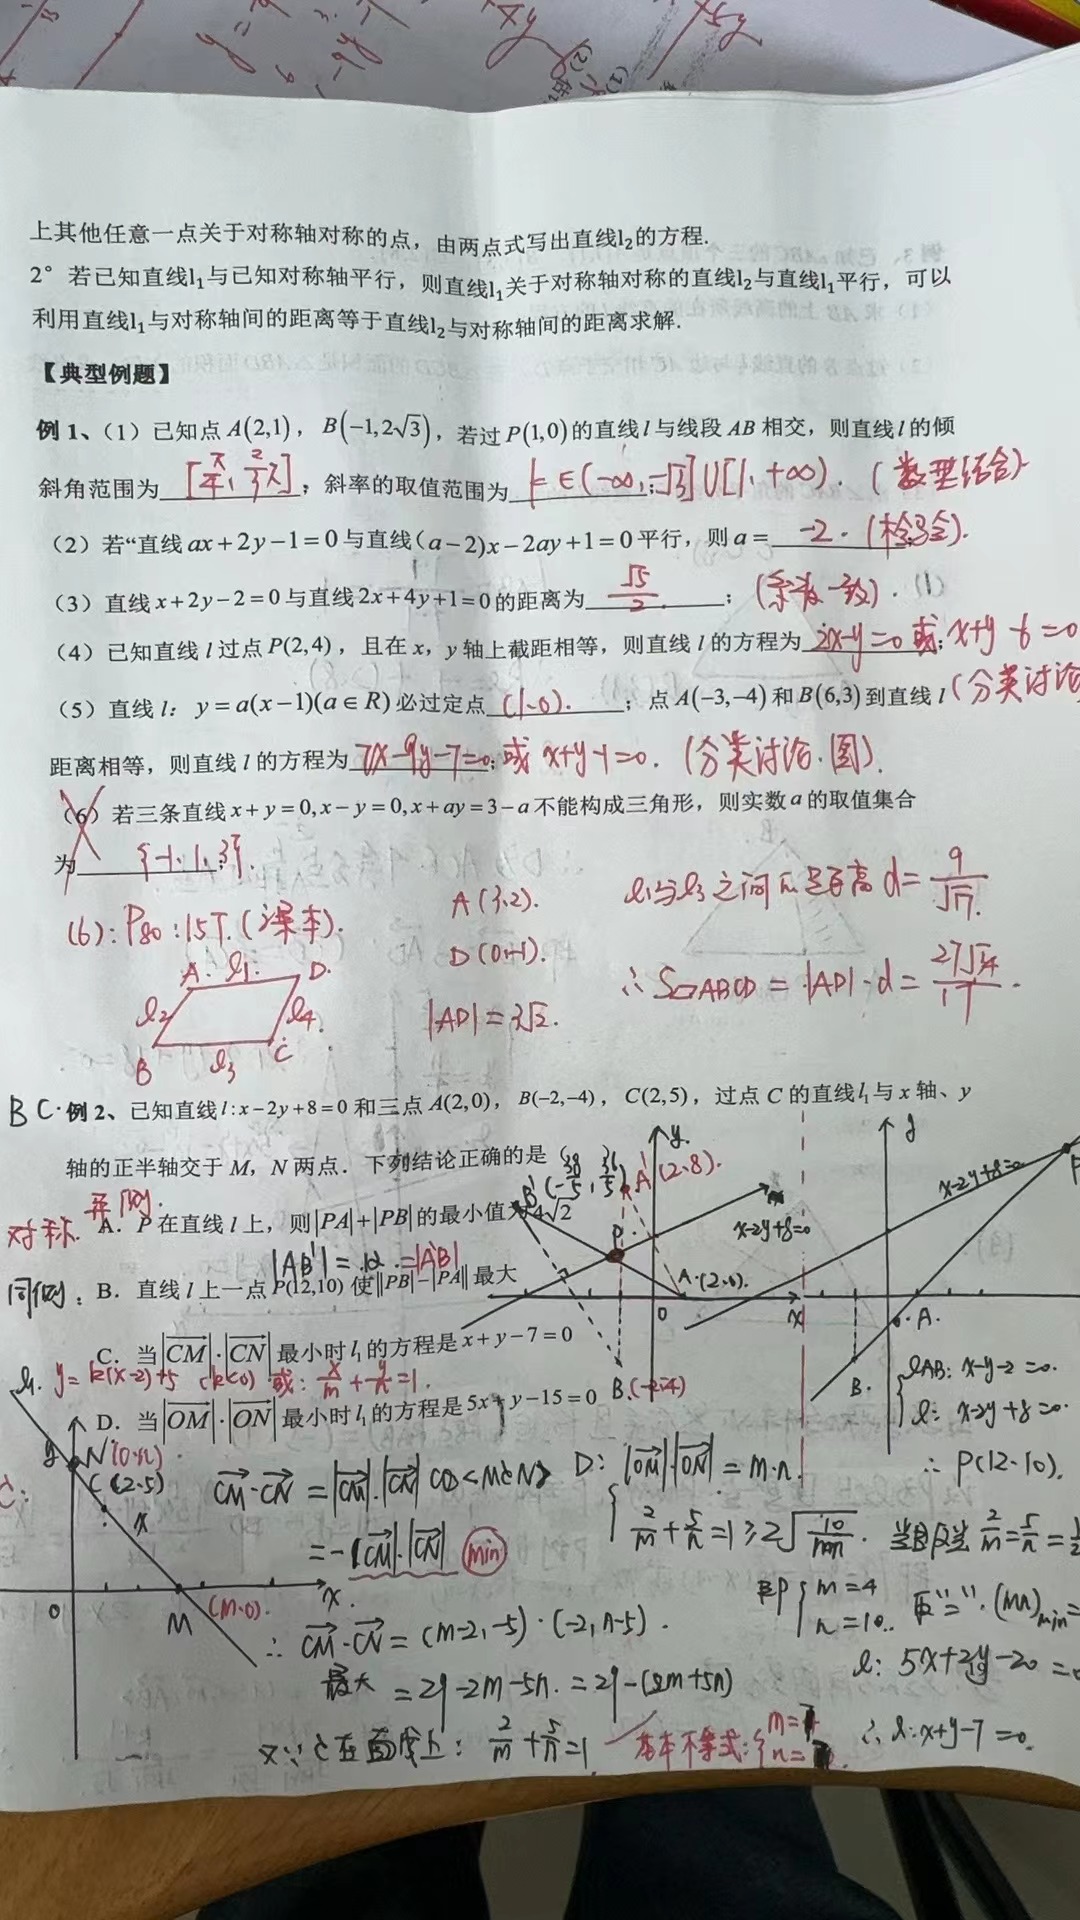 上其他任意一点关于对称轴对称的点，由两点式写出直线l₂的方程.
2° 若已知直线l₁与已知对称轴平行，则直线l₁关于对称轴对称的直线l₂与直线l₁平行，可以
利用直线l₁与对称轴间的距离等于直线l₂与对称轴间的距离求解.
【典型例题】
例 1、（1）已知点 A(2,1)，B(-1,2√3)，若过 P(1,0) 的直线 l 与线段 AB 相交，则直线 l 的倾
斜角范围为 [π/4, 2/3π]；斜率的取值范围为 k∈(-∞,-√3]∪[1,+∞). (数型结合)
（2）若“直线 ax+2y-1=0 与直线 (a-2)x-2ay+1=0 平行，则 a= -2. (检验).
（3）直线 x+2y-2=0 与直线 2x+4y+1=0 的距离为 √5/2 ；(系数一致).
（4）已知直线 l 过点 P(2,4)，且在 x，y 轴上截距相等，则直线 l 的方程为 2x-y=0 或 x+y-6=0
（5）直线 l：y=a(x-1)(a∈R) 必过定点 (1.0). ；点 A(-3,-4) 和 B(6,3) 到直线 l (分类讨论
距离相等，则直线 l 的方程为 7x-9y-7=0; 或 x+y-1=0. (分类讨论.图).
（6）若三条直线 x+y=0,x-y=0,x+ay=3-a 不能构成三角形，则实数 a 的取值集合
为 {-1.1.3}.
(6): P80:15T.(课本).
A(3,2).
l₁与l₃之间 距离 d=9/√17.
D(0,-1).
A. l₁. D.
l₂ l₄
B l₃ C
|AD|=3√2.
∴ S▱ABCD = |AD|·d = 27√34/17.
BC. 例 2、已知直线 l:x-2y+8=0 和三点 A(2,0)，B(-2,-4)，C(2,5)，过点 C 的直线 l₁ 与 x 轴、y
轴的正半轴交于 M，N 两点．下列结论正确的是
B'(-38/5, 36/5) A'(-2.8).
对称. 异侧.
A．P 在直线 l 上，则 |PA|+|PB| 的最小值为 4√2
|AB'|=12.=|A'B|
同侧:
B．直线 l 上一点 P(12,10) 使 ||PB|-|PA|| 最大
C．当 |CM|·|CN| 最小时 l₁ 的方程是 x+y-7=0
l₁. y=k(x-2)+5 (k<0) 或: x/m+y/n=1.
D．当 |OM|·|ON| 最小时 l₁ 的方程是 5x+y-15=0
y. P. x-2y+8=0 A.(2.0). O x B.(-2.-4)
y x-2y+8=0 P A. B.
lAB: x-y-2=0.
l: x-2y+8=0.
∴ P(12.10).
y N(0.n) C(2.5) O M (m.0). x.
CM·CN=|CM|·|CN| cos<MCN>
=-|CM|·|CN| (min)
∴ CM·CN=(m-2,-5)·(-2,n-5).
最大 =29-2m-5n.=29-(2m+5n)
又∵C在直线上: 2/m+5/n=1. 基本不等式: m=7 n=7.
D: |OM|·|ON|=m·n.
2/m+5/n=1≥2√(10/mn). 当且仅当 2/m=5/n=1/2
即 m=4 n=10. 取"=". (mn)min=
l: 5x+2y-20=0
∴ l:x+y-7=0.